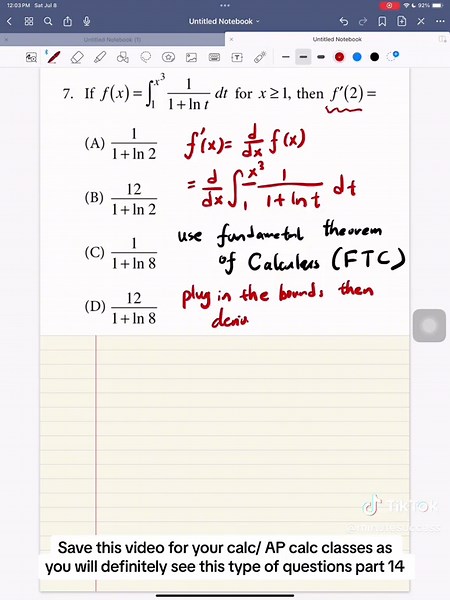 12:03 PM Sat Jul 8
92%
Untitled Notebook
Untitled Notebook (1)
Untitled Notebook
7. If f(x) = ∫₁^{x³} 1/(1+ln t) dt for x ≥ 1, then f′(2) =
(A) 1/(1+ln 2)
f′(x) = d/dx f(x)
(B) 12/(1+ln 2)
= d/dx ∫₁^{x³} 1/(1+ln t) dt
use fundamental theorem
(C) 1/(1+ln 8)
of Calculers (FTC)
(D) 12/(1+ln 8)
plug in the bounds then
deriv
TikTok
Save this video for your calc/ AP calc classes as
you will definitely see this type of questions part 14